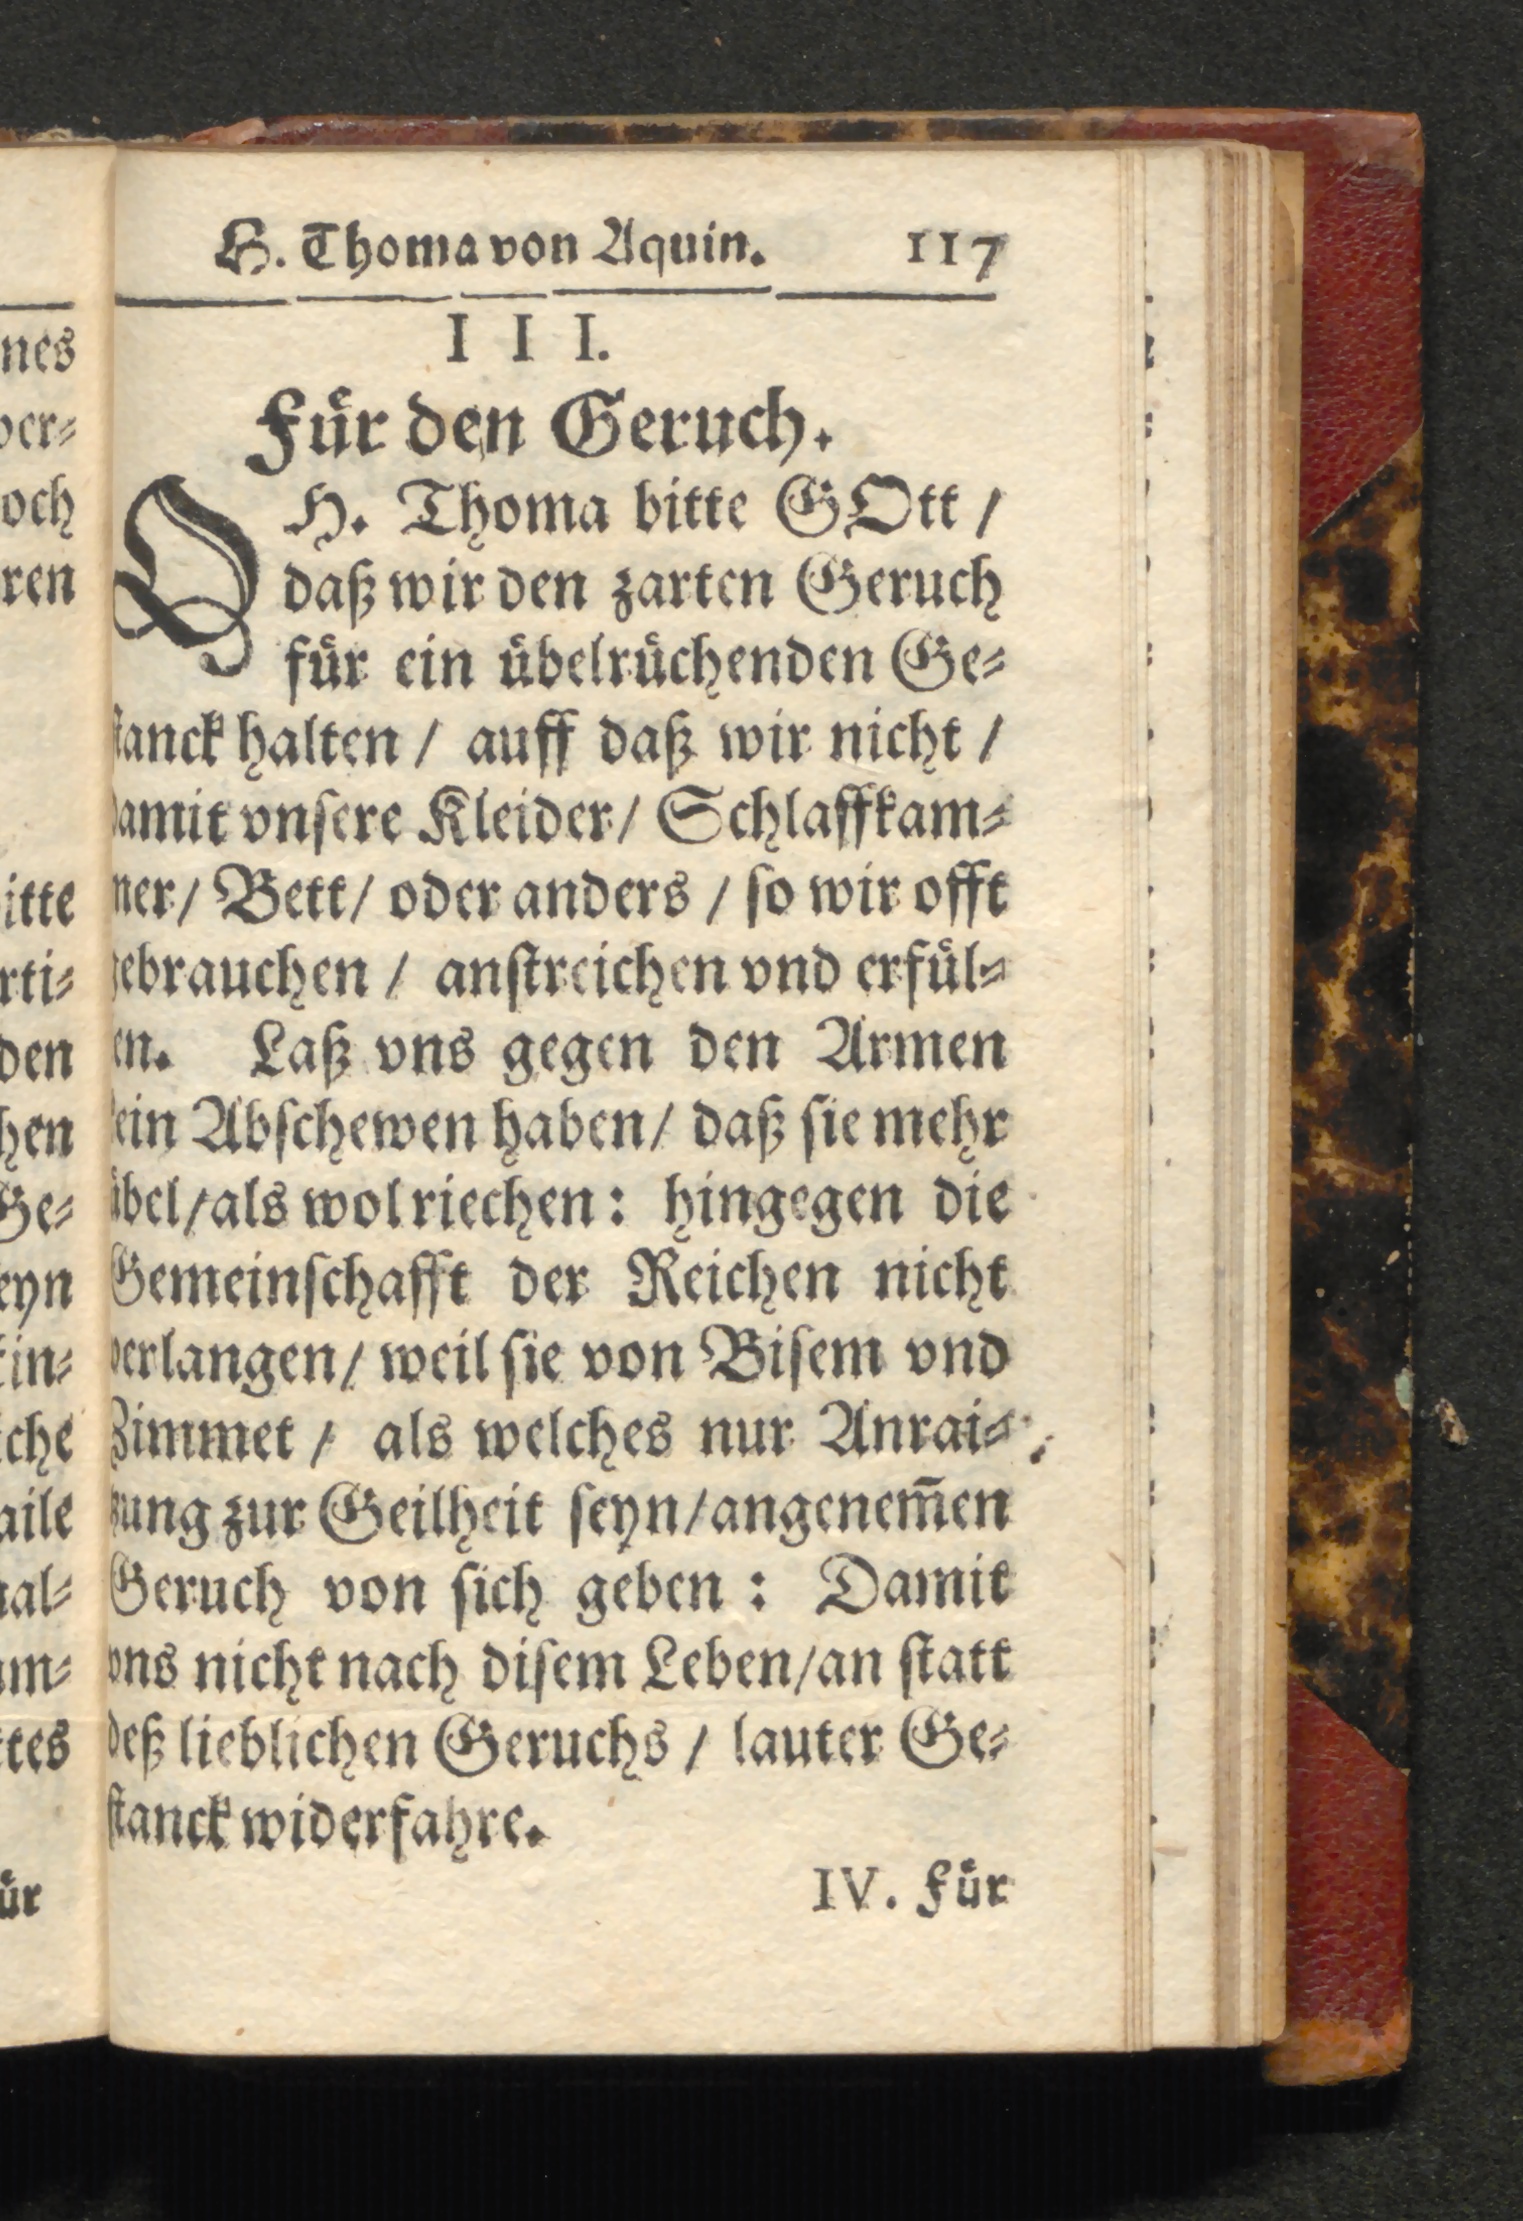 H. Thoma von Aquin. 117
III.
Für den Geruch.
O H. Thoma bitte GOtt /
daß wir den zarten Geruch
für ein übelrüchenden Ge-
stanck halten / auff daß wir nicht /
damit vnsere Kleider / Schlaffkam-
mer / Bett / oder anders / so wir offt
gebrauchen / anstreichen vnd erfül-
en. Laß vns gegen den Armen
kein Abschewen haben / daß sie mehr
übel / als wol riechen: hingegen die
Gemeinschafft der Reichen nicht
verlangen / weil sie von Bisem vnd
Zimmet / als welches nur Anrai-
zung zur Geilheit seyn / angenem̅en
Geruch von sich geben: Damit
vns nicht nach disem Leben / an statt
deß lieblichen Geruchs / lauter Ge-
stanck widerfahre.
IV. Für